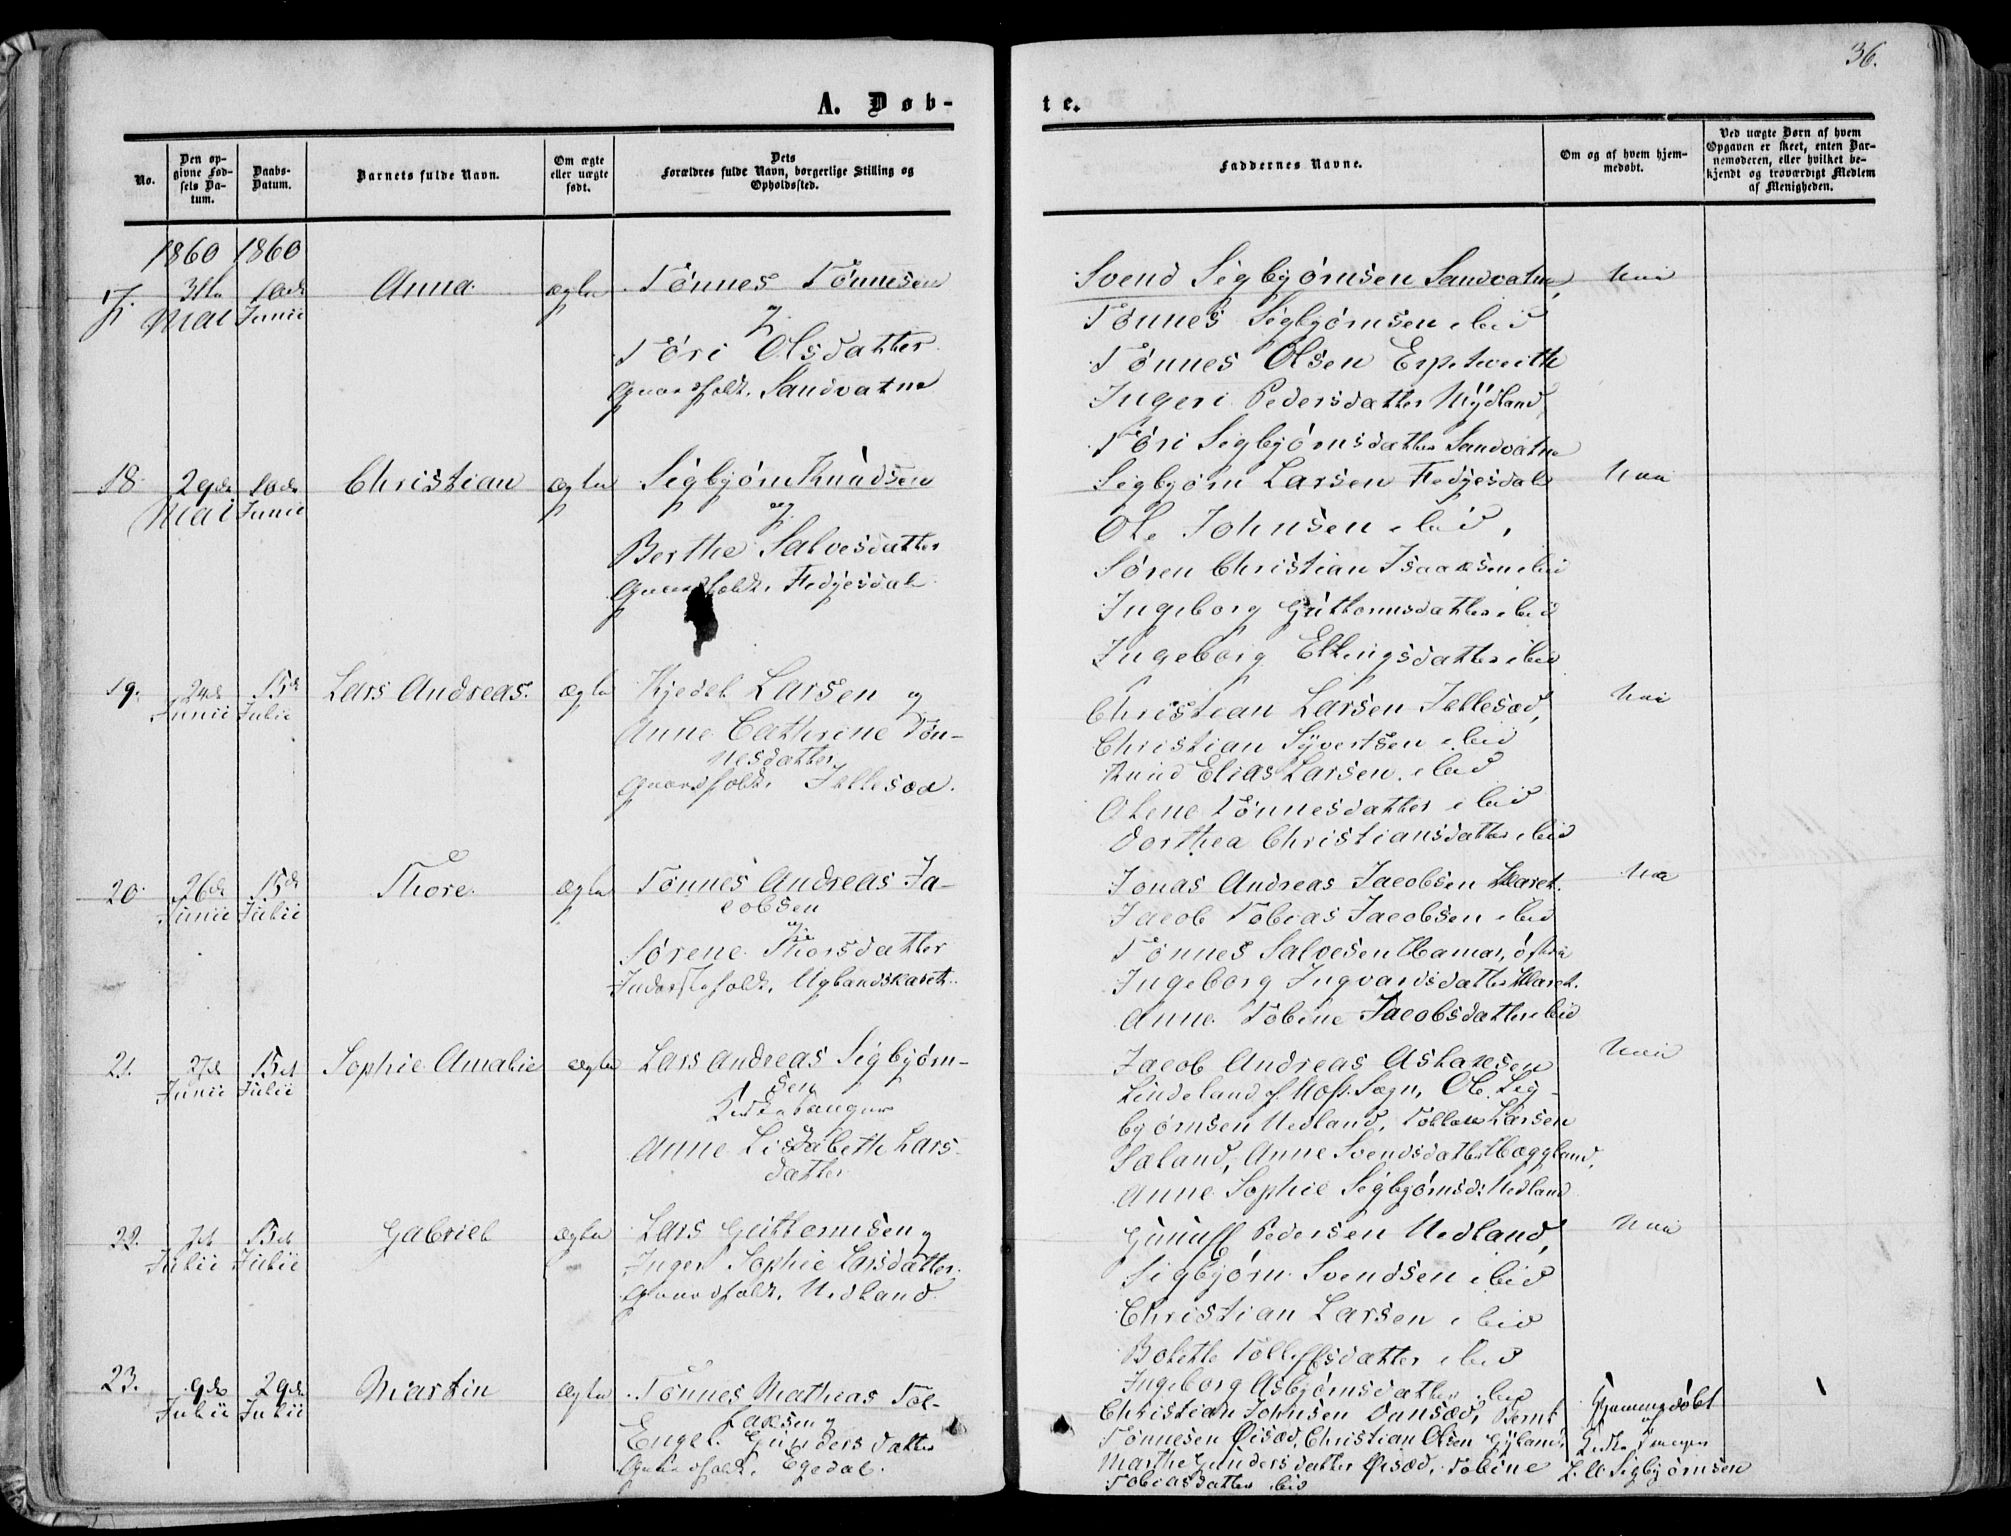 36.
A. Døb-
te.
No.
Den op-
givne Fød-
sels Da-
tum.
Daabs-
Datum.
Barnets fulde Navn.
Om ægte
eller uægte
født.
Dets
Forældres fulde Navn, borgerlige Stilling og
Opholdssted.
Faddernes Navne.
Om og af hvem hjem-
medøbt.
Ved uægte Børn af hvem
Opgaven er skeet, enten Bar-
nemoderen, eller hvilket be-
kjendt og troværdigt Medlem
af Menigheden.
1860 1860
17. 31te 10de Anna. ægte Tønnes Tønnesen
Mai Junii og
Tøri Olsdatter
Gaardfolk, Sandvatne
Svend Sigbjørnsen Sandvatne,
Tønnes Sigbjørnsen ibid
Tønnes Olsen Erpetveith
Ingeri Pedersdatter Mydland
Tøri Sigbjørnsdatter Sandvatne
Nei
18. 29de 10de Christian ægte Sigbjørn Knudsen
Mai Junii og
Berthe Salvesdatter
Gaardfolk, Fedjesdal
Sigbjørn Larsen Fedjesdal
Ole Johnsen ibid,
Søren Christian Isaaksen ibid
Ingeborg Guttormsdatter ibid
Ingeborg Ellingsdatter ibid
Nei
19. 24de 15de Lars Andreas. ægte Kjedel Larsen og
Junii Julii Anne Cathrine Tøn-
nesdatter
Gaardfolk, Jellesad.
Christian Larsen Jellesad,
Christian Syvertsen ibid
Knud Elias Larsen ibid
Olene Tønnesdatter ibid
Dorthea Christiansdatter ibid
Nei
20. 26de 15de Thore. ægte Tønnes Andreas Ja-
Junii Julii cobsen
og
Sørene Thorsdatter
Inderstefolk, Uglandskaret.
Jonas Andreas Jacobsen Skaret.
Jacob Tobias Jacobsen ibid
Tønnes Salvesen Hamar, østre
Ingeborg Ingvardsdatter Skaret.
Anne Tobine Jacobsdatter ibid
Nei
21. 27de 15de Sophie Amalie ægte Lars Andreas Sigbjørn-
Junii Julii sen
Kirkesanger
Anne Lisabeth Lars-
datter
Jacob Andreas Aslaksen
Lindeland Sogn, Ole Sig-
bjørnsen Nedland, Tollak Larsen
Søland, Anne Svendsdatter Haggland,
Anne Sophie Sigbjørnsd: Nedland
Nei
22. 7de 15de Gabriel ægte Lars Guttormsen og
Julii Julii Inger Sophie Larsdatter.
Gaardfolk, Nedland
Gunuff Pedersen Nedland,
Sigbjørn Svendsen ibid
Christian Larsen ibid
Bolette Tollefsdatter ibid
Ingeborg Asbjørnsdatter ibid
Nei
23. 9de 29de Martin ægte Tønnes Mathias Tol-
Julii Julii laksen og
Engel Gunders datter
Gaardfolk, Egedal.
Christian Johnsen Dunsæd, Bernt
Tønnesen Øisæd, Christian Olsen Gyland,
Marthe Gundersdatter Øisæd, Tobine
Tobiasdatter ibid
Hjemmedøbt
af
Kirkesanger
L. A. Sigbjørnsen